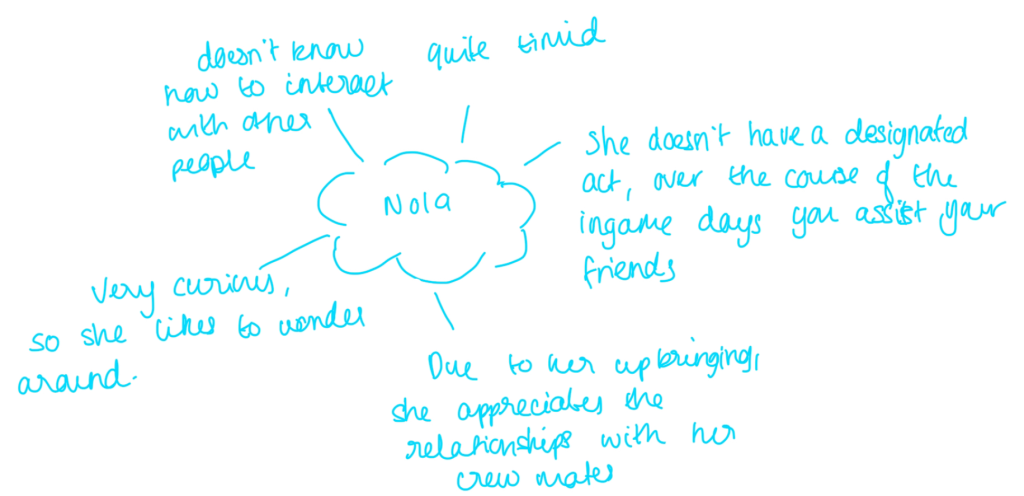 doesn't know
how to interact
with other
people
quite timid
She doesn't have a designated
act, over the course of the
ingame days you assist your
friends
Nola
Very curious,
so she likes to wonder
around.
Due to her upbringing,
she appreciates the
relationships with her
crew mates